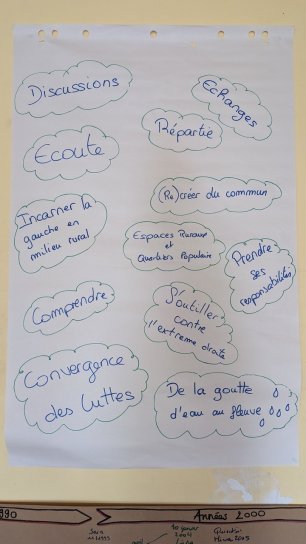 Discussions
Echanges
Répartie
Ecoute
(Re)créer du commun
Incarner la
gauche en
milieu rural
Espaces Ruraux
et
Quartiers Populaire
Prendre
ses
responsabilités
Comprendre
S'outiller
contre
l'extrême droite
Convergence
des luttes
De la goutte
d'eau au fleuve
990
Années 2000
10 janvier